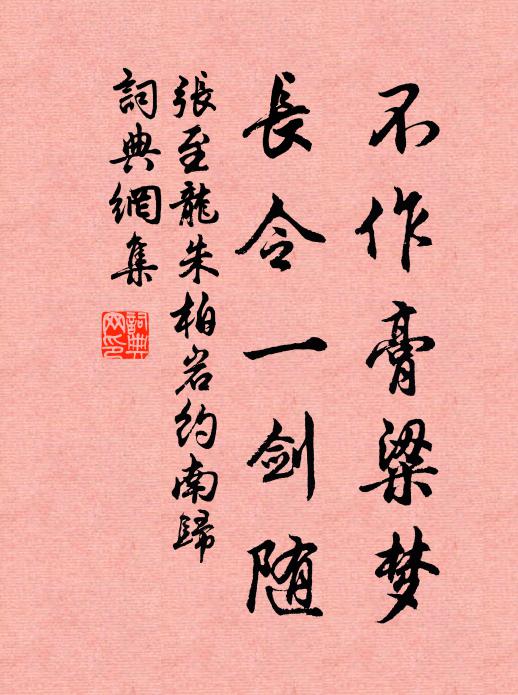 不作膏粱梦
長令一剑随
張至龍朱柏岩約南歸
詞典網集
詞典网印